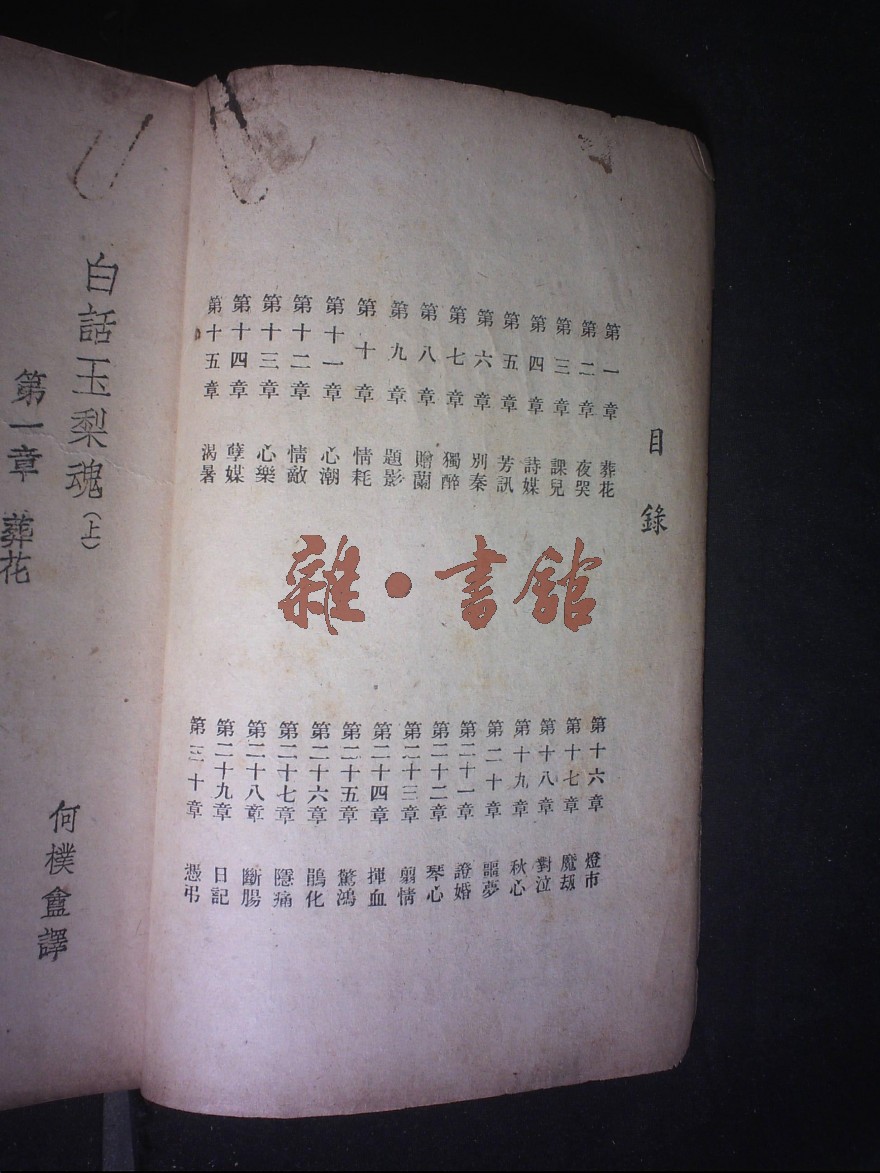 目錄
第一章 葬花
第二章 夜哭
第三章 課兒
第四章 詩媒
第五章 芳訊
第六章 別秦
第七章 獨醉
第八章 贈蘭
第九章 題影
第十章 情耗
第十一章 心潮
第十二章 情敵
第十三章 心樂
第十四章 孽媒
第十五章 渴暑
雜·書館
第十六章 燈市
第十七章 魔劫
第十八章 對泣
第十九章 秋心
第二十章 噩夢
第二十一章 證婚
第二十二章 琴心
第二十三章 剪情
第二十四章 揮血
第二十五章 驚鴻
第二十六章 鵑化
第二十七章 隱痛
第二十八章 斷腸
第二十九章 日記
第三十章 憑弔
白話玉梨魂(上)
何樸盦譯
第一章 葬花